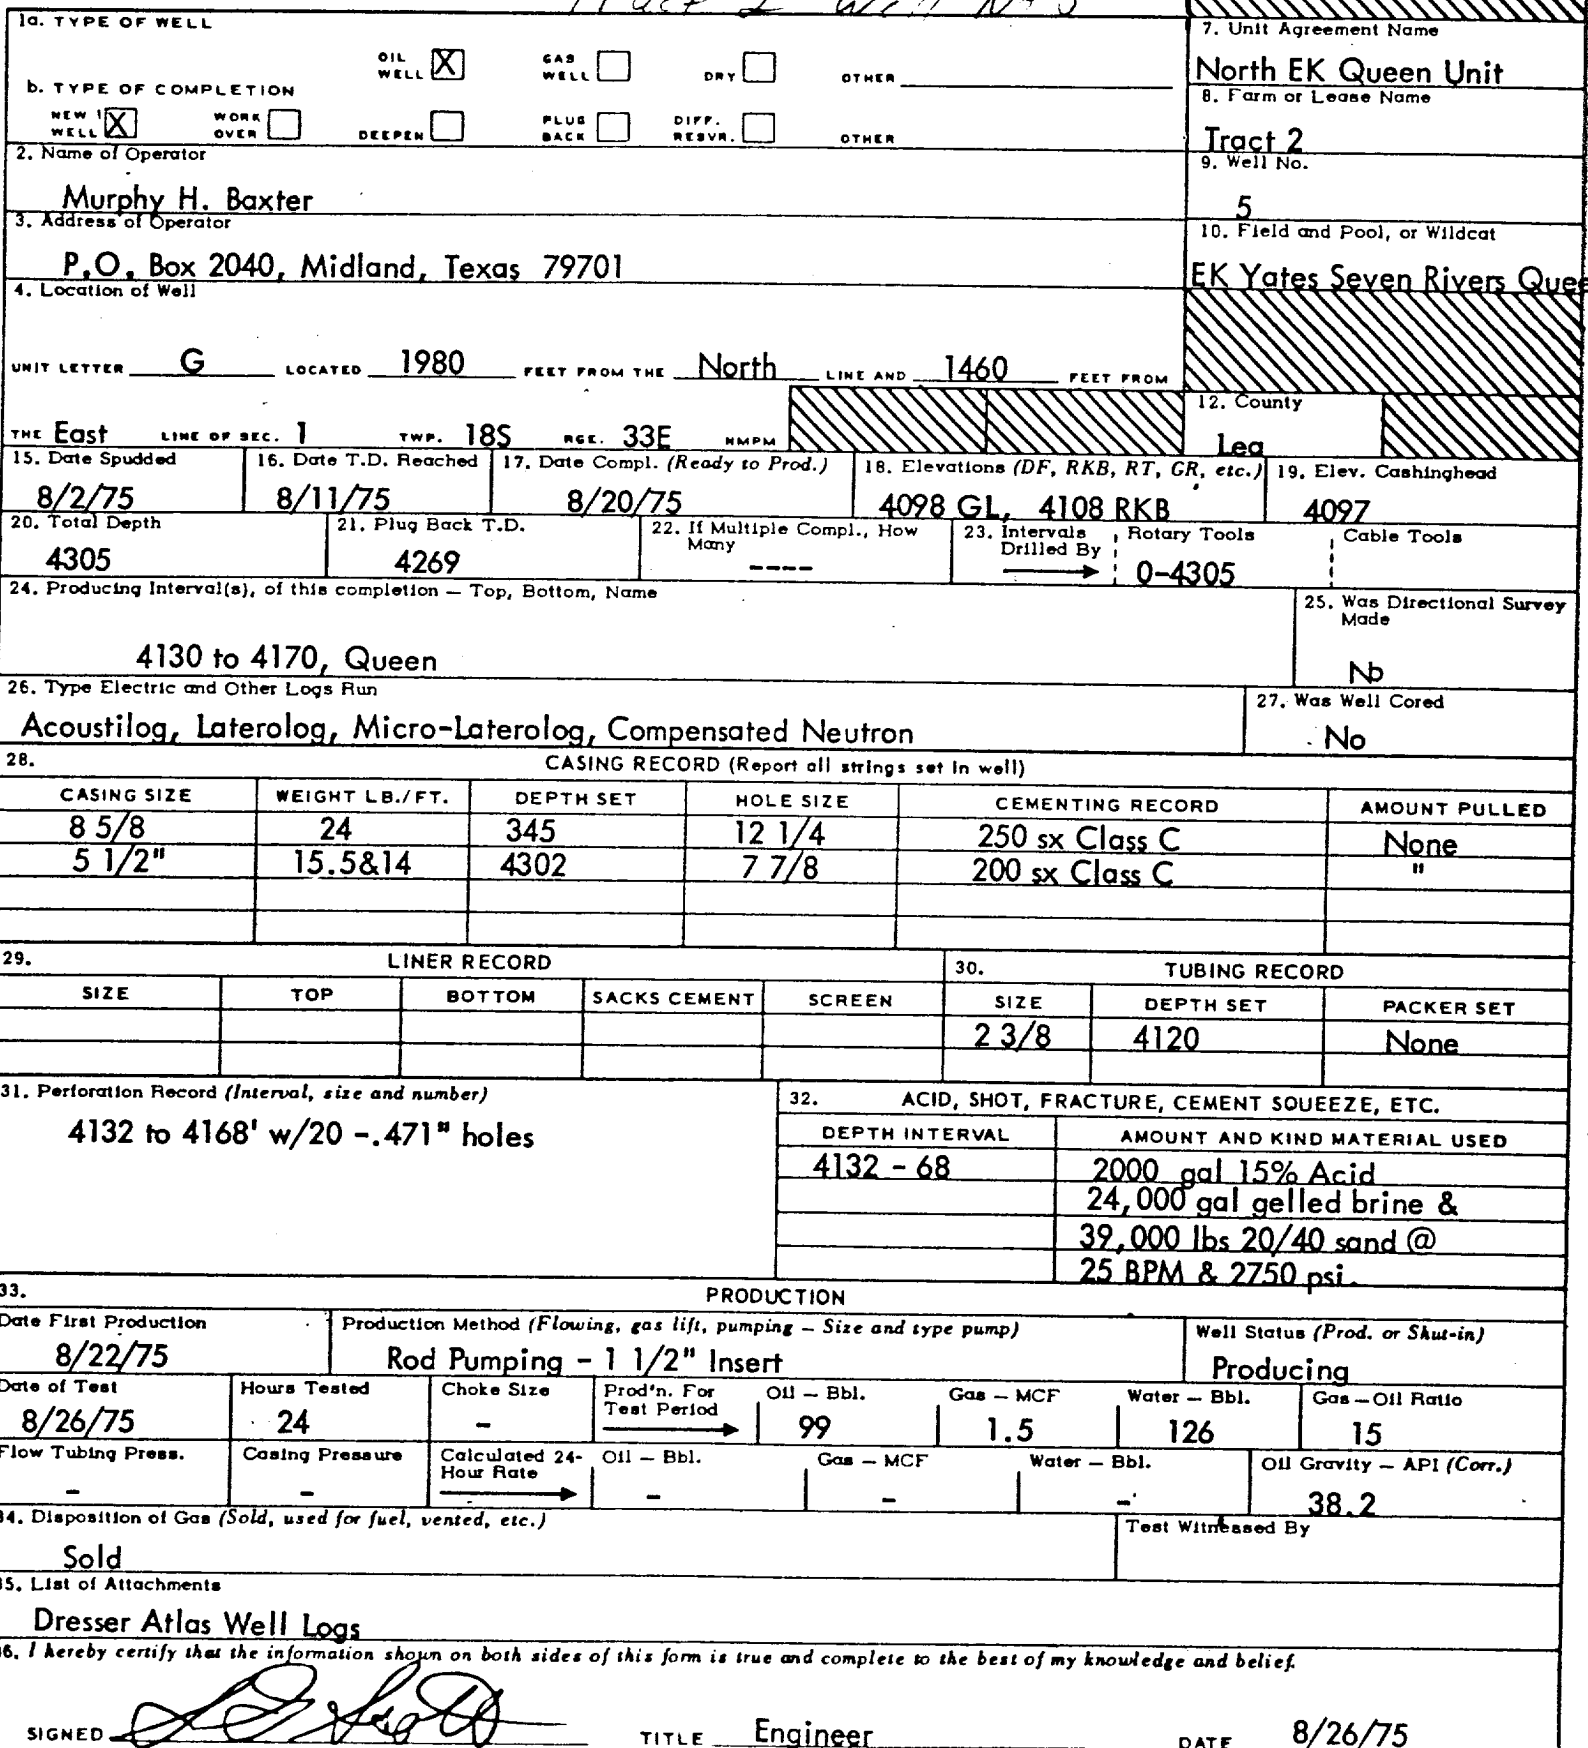 Tract 2 Well No 5
1a. TYPE OF WELL
OIL WELL X GAS WELL DRY OTHER
7. Unit Agreement Name
North EK Queen Unit
b. TYPE OF COMPLETION
NEW WELL X WORK OVER DEEPEN PLUG BACK DIFF. RESVR. OTHER
8. Farm or Lease Name
Tract 2
2. Name of Operator
Murphy H. Baxter
9. Well No.
5
3. Address of Operator
P.O. Box 2040, Midland, Texas 79701
10. Field and Pool, or Wildcat
EK Yates Seven Rivers Quee
4. Location of Well
UNIT LETTER G LOCATED 1980 FEET FROM THE North LINE AND 1460 FEET FROM
THE East LINE OF SEC. 1 TWP. 18S RGE. 33E NMPM
12. County
Lea
15. Date Spudded 16. Date T.D. Reached 17. Date Compl. (Ready to Prod.) 18. Elevations (DF, RKB, RT, GR, etc.) 19. Elev. Cashinghead
8/2/75 8/11/75 8/20/75 4098 GL, 4108 RKB 4097
20. Total Depth 21. Plug Back T.D. 22. If Multiple Compl., How Many 23. Intervals Drilled By Rotary Tools Cable Tools
4305 4269 ---- 0-4305
24. Producing Interval(s), of this completion — Top, Bottom, Name
4130 to 4170, Queen
25. Was Directional Survey Made
No
26. Type Electric and Other Logs Run
Acoustilog, Laterolog, Micro-Laterolog, Compensated Neutron
27. Was Well Cored
No
28. CASING RECORD (Report all strings set in well)
CASING SIZE WEIGHT LB./FT. DEPTH SET HOLE SIZE CEMENTING RECORD AMOUNT PULLED
8 5/8 24 345 12 1/4 250 sx Class C None
5 1/2" 15.5&14 4302 7 7/8 200 sx Class C "
29. LINER RECORD 30. TUBING RECORD
SIZE TOP BOTTOM SACKS CEMENT SCREEN SIZE DEPTH SET PACKER SET
2 3/8 4120 None
31. Perforation Record (Interval, size and number)
4132 to 4168' w/20 -.471" holes
32. ACID, SHOT, FRACTURE, CEMENT SQUEEZE, ETC.
DEPTH INTERVAL AMOUNT AND KIND MATERIAL USED
4132 - 68 2000 gal 15% Acid
24,000 gal gelled brine &
39,000 lbs 20/40 sand @
25 BPM & 2750 psi.
33. PRODUCTION
Date First Production Production Method (Flowing, gas lift, pumping — Size and type pump) Well Status (Prod. or Shut-in)
8/22/75 Rod Pumping - 1 1/2" Insert Producing
Date of Test Hours Tested Choke Size Prod'n. For Test Period Oil — Bbl. Gas — MCF Water — Bbl. Gas—Oil Ratio
8/26/75 24 - 99 1.5 126 15
Flow Tubing Press. Casing Pressure Calculated 24-Hour Rate Oil — Bbl. Gas — MCF Water — Bbl. Oil Gravity — API (Corr.)
- - - - - 38.2
34. Disposition of Gas (Sold, used for fuel, vented, etc.)
Sold
Test Witnessed By
35. List of Attachments
Dresser Atlas Well Logs
36. I hereby certify that the information shown on both sides of this form is true and complete to the best of my knowledge and belief.
SIGNED TITLE Engineer DATE 8/26/75